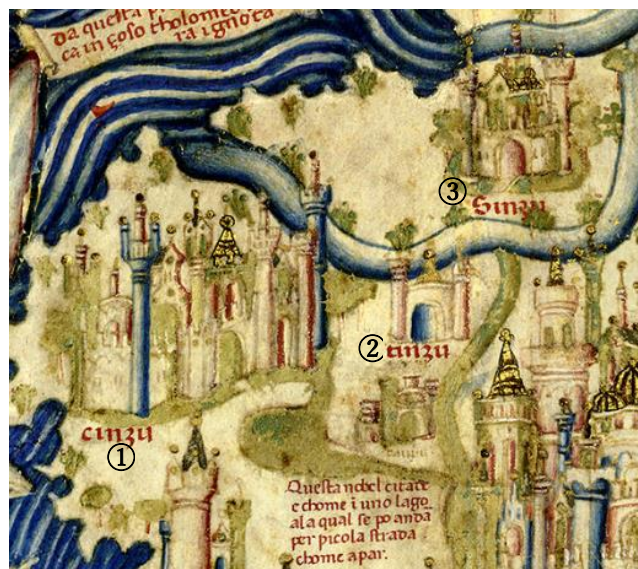 da questa
ca in çoso tholomeo
ra ignota
③
Sinzu
②
tinzu
cinzu
①
Questa nobel citade
e chome ī uno lago
ala qual se po anda
per picola strada
chome apar.